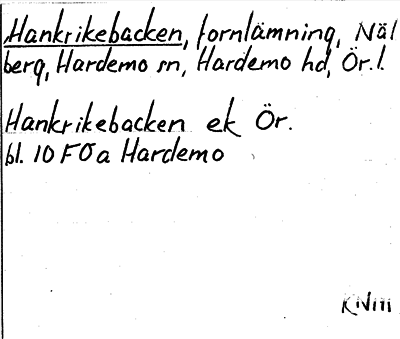 Hankrikebacken, fornlämning, Näl
berg, Hardemo sn, Hardemo hd, Ör. l.
Hankrikebacken ek Ör.
bl. 10 F 0 a Hardemo